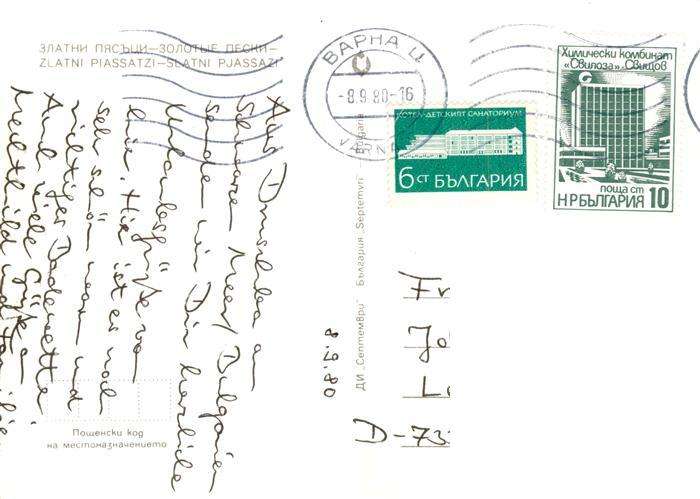 ЗЛАТНИ ПЯСЪЦИ—ЗОЛОТЫЕ ПЕСКИ—
ZLATNI PIASSATZI—SLATNI PJASSAZI
ВАРНА Ц.
-8.9.80-16
VARNA
КОТЕЛ-ДЕТСКИЯТ САНАТОРИУМ
6 СТ БЪЛГАРИЯ
Химически комбинат
„Свилоза»-Свищов
поща ст
НР БЪЛГАРИЯ 10
Aus Druschba am
Schwarzen Meer Bulgarien
senden wir Dir herzliche
Urlaubsgrüße von
hier. Hier ist es noch
sehr schön warm und
richtiges Badewetter
Auch viele Grüße an
Mechthild und Familie
Пощенски код
на местоназначението
ДИ „Септември" България „Septemvri" Bulgaria
8.9.80
Fr
Jo
L
D-73